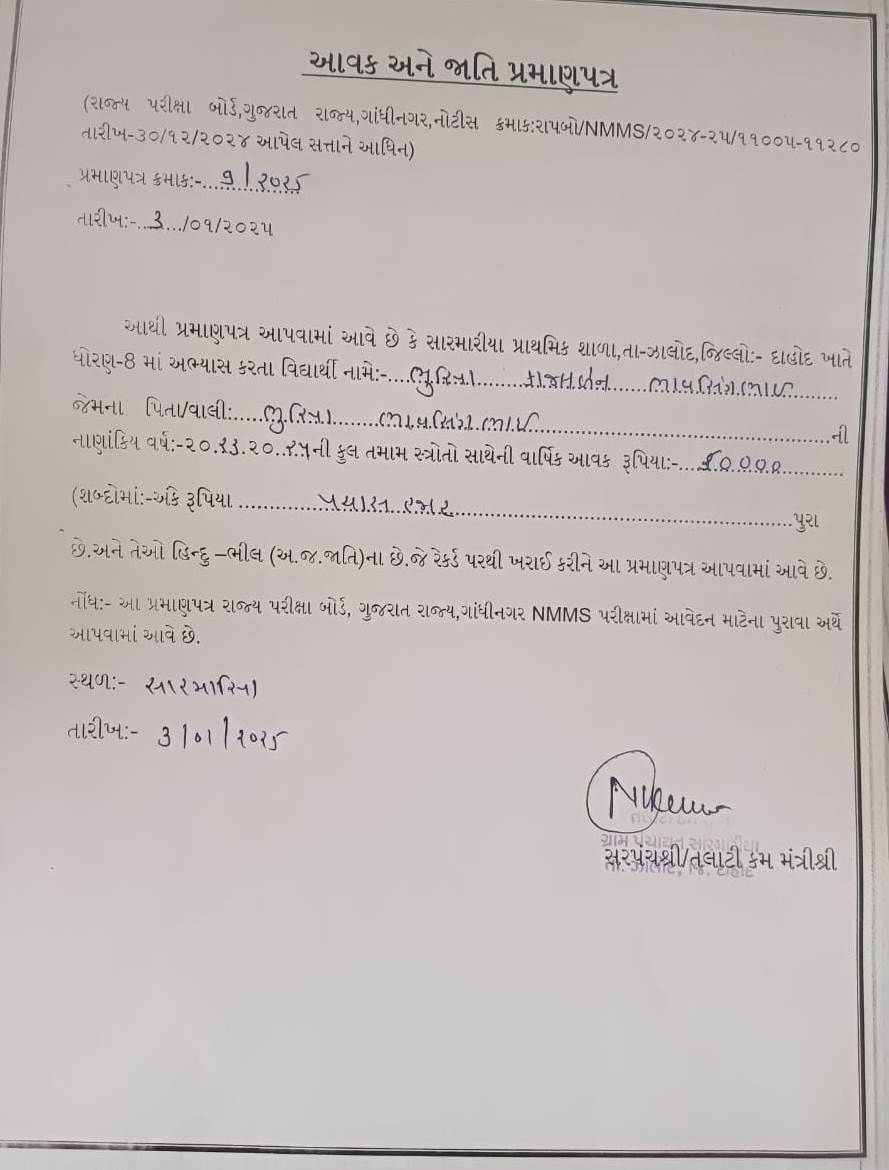 આવક અને જાતિ પ્રમાણપત્ર
(રાજ્ય પરીક્ષા બોર્ડ,ગુજરાત રાજ્ય,ગાંધીનગર,નોટીસ ક્રમાક:રાપબો/NMMS/૨૦૨૪-૨૫/૧૧૦૦૫-૧૧૨૮૦
તારીખ-૩૦/૧૨/૨૦૨૪ આપેલ સત્તાને આધિન)
પ્રમાણપત્ર ક્રમાક:-...૭/૨૦૨૫
તારીખ:-..૩.../૦૧/૨૦૨૫
આથી પ્રમાણપત્ર આપવામાં આવે છે કે સારમારીયા પ્રાથમિક શાળા,તા-ઝાલોદ,જિલ્લો:- દાહોદ ખાતે
ધોરણ-8 માં અભ્યાસ કરતા વિદ્યાર્થી નામે:-....ભુરિયા........કાજલબેન......ભાવસિંગભાઈ.......
જેમના પિતા/વાલી:....ભુરિયા.......ભાવસિંગભાઈ........................................ની
નાણાંકિય વર્ષ:-૨૦.૨૩.૨૦..૨૫ની કુલ તમામ સ્ત્રોતો સાથેની વાર્ષિક આવક રૂપિયા:-...૫૦૦૦૦.........
(શબ્દોમાં:-અંકે રૂપિયા ............પચાસ હજાર...........................................પુરા
છે.અને તેઓ હિન્દુ –ભીલ (અ.જ.જાતિ)ના છે.જે રેકર્ડ પરથી ખરાઈ કરીને આ પ્રમાણપત્ર આપવામાં આવે છે.
નોંધ:- આ પ્રમાણપત્ર રાજ્ય પરીક્ષા બોર્ડ, ગુજરાત રાજ્ય,ગાંધીનગર NMMS પરીક્ષામાં આવેદન માટેના પુરાવા અર્થે
આપવામાં આવે છે.
સ્થળ:- સારમારિયા
તારીખ:- 3/01/૨૦૨૫
ગ્રામ પંચાયત સારમારીયા
સરપંચશ્રી/તલાટી કમ મંત્રીશ્રી
તા. ઝાલોદ, જિ. દાહોદ